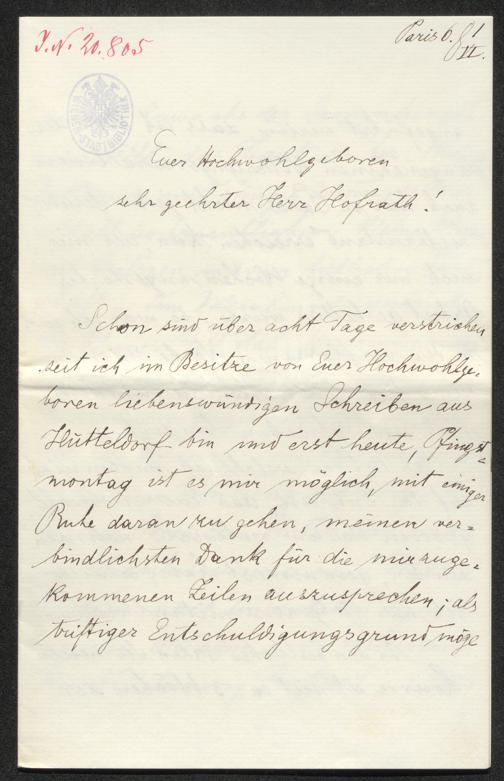 J. N. 20.805
Paris 6. 8/VI.
WIENER STADTBIBLIOTHEK
Euer Hochwohlgeboren
sehr geehrter Herr Hofrath!
Schon sind über acht Tage verstrichen
seit ich im Besitze von Euer Hochwohlge-
boren liebenswürdigen Schreiben aus
Hütteldorf bin und erst heute, Pfingst=
montag ist es mir möglich, mit einiger
Ruhe daran zu gehen, meinen ver=
bindlichsten Dank für die mir zuge=
kommenen Zeilen auszusprechen; als
triftiger Entschuldigungsgrund möge